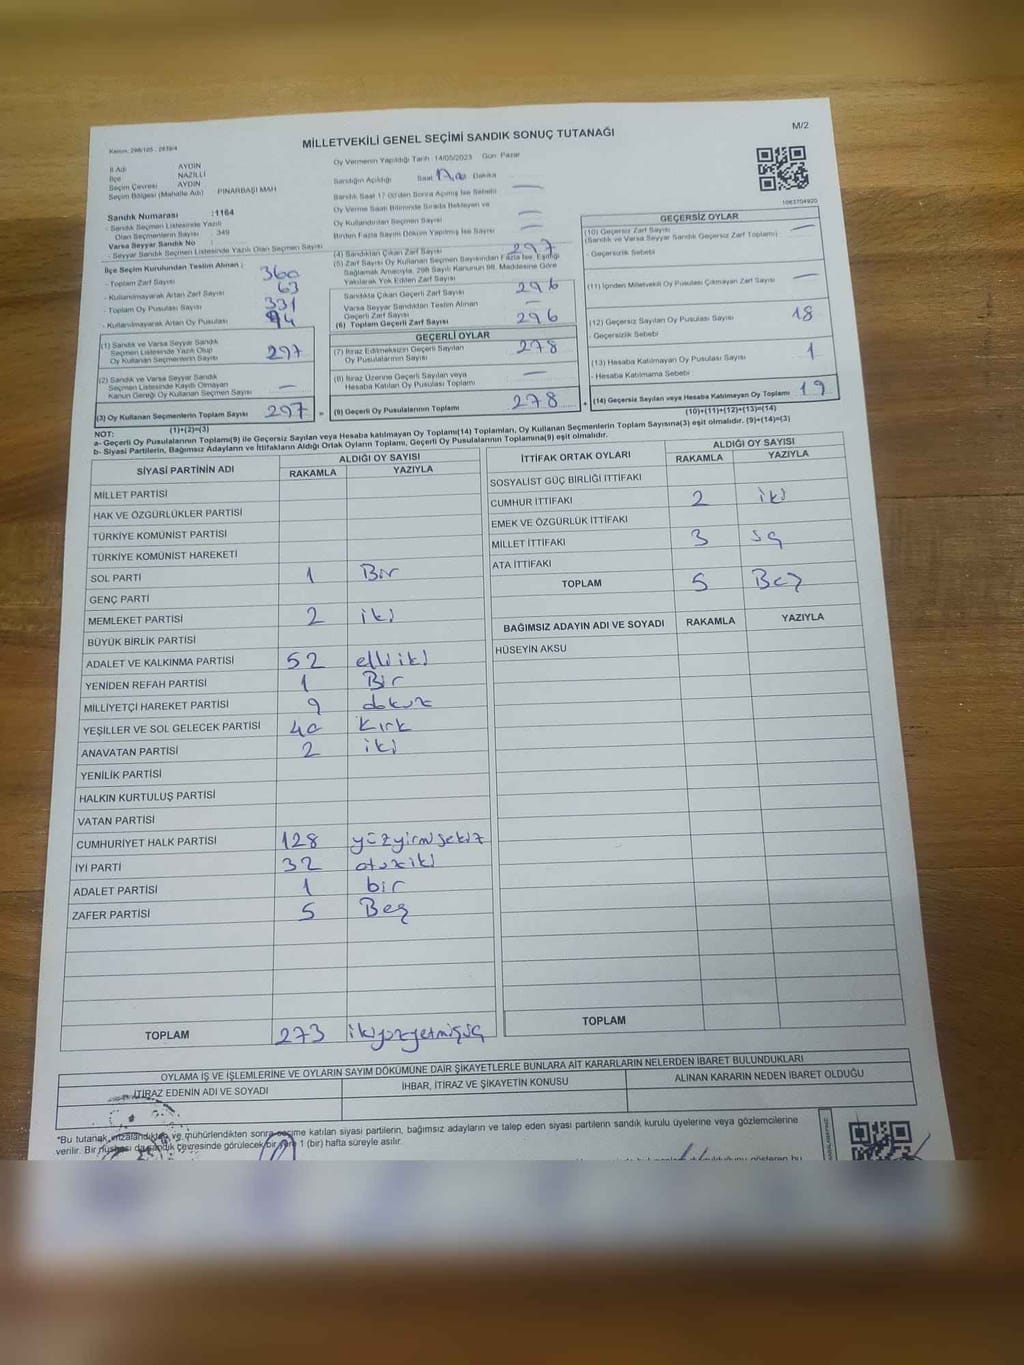 MİLLETVEKİLİ GENEL SEÇİMİ SANDIK SONUÇ TUTANAĞI
M/2
İl Adı AYDIN
İlçe NAZİLLİ
Seçim Çevresi AYDIN
Seçim Bölgesi (Mahalle Adı) PINARBAŞI MAH
Sandık Numarası :1164
- Sandık Seçmen Listesinde Yazılı
Olan Seçmenlerin Sayısı 349
Varsa Seyyar Sandık No :
- Seyyar Sandık Seçmen Listesinde Yazılı Olan Seçmen Sayısı
İlçe Seçim Kurulundan Teslim Alınan ;
- Toplam Zarf Sayısı 360
- Kullanılmayarak Artan Zarf Sayısı 63
- Toplam Oy Pusulası Sayısı 331
- Kullanılmayarak Artan Oy Pusulası
(1) Sandık ve Varsa Seyyar Sandık
Seçmen Listesinde Yazılı Olup
Oy Kullanan Seçmenlerin Sayısı 297
(2) Sandık ve Varsa Seyyar Sandık
Seçmen Listesinde Kayıtlı Olmayan
Kanun Gereği Oy Kullanan Seçmen Sayısı —
(3) Oy Kullanan Seçmenlerin Toplam Sayısı 297
(1)+(2)=(3)
Oy Vermenin Yapıldığı Tarih : 14/05/2023 Gün Pazar
Sandığın Açıldığı Saat Dakika
Sandık Saat 17:00'den Sonra Açılmış İse Sebebi —
Oy Verme Saati Bitiminde Sırada Bekleyen ve
Oy Kullandırılan Seçmen Sayısı —
Birden Fazla Sayım Döküm Yapılmış İse Sayısı —
(4) Sandıktan Çıkan Zarf Sayısı 297
(5) Zarf Sayısı Oy Kullanan Seçmen Sayısından Fazla İse, Eşitliği
Sağlamak Amacıyla, 298 Sayılı Kanunun 98. Maddesine Göre
Yakılarak Yok Edilen Zarf Sayısı
Sandıkta Çıkan Geçerli Zarf Sayısı 296
Varsa Seyyar Sandıktan Teslim Alınan
Geçerli Zarf Sayısı —
(6) Toplam Geçerli Zarf Sayısı 296
GEÇERLİ OYLAR
(7) İtiraz Edilmeksizin Geçerli Sayılan
Oy Pusulasının Sayısı 278
(8) İtiraz Üzerine Geçerli Sayılan veya
Hesaba Katılan Oy Pusulası Toplamı —
(9) Geçerli Oy Pusulalarının Toplamı 278
1063704920
GEÇERSİZ OYLAR
(10) Geçersiz Zarf Sayısı
(Sandık ve Varsa Seyyar Sandık Geçersiz Zarf Toplamı) —
- Geçersizlik Sebebi
(11) İçinden Milletvekili Oy Pusulası Çıkmayan Zarf Sayısı —
(12) Geçersiz Sayılan Oy Pusulası Sayısı 18
Geçersizlik Sebebi
(13) Hesaba Katılmayan Oy Pusulası Sayısı 1
- Hesaba Katılmama Sebebi
(14) Geçersiz Sayılan veya Hesaba Katılmayan Oy Toplamı 19
(10)+(11)+(12)+(13)=(14)
NOT:
a- Geçerli Oy Pusulalarının Toplamı(9) ile Geçersiz Sayılan veya Hesaba katılmayan Oy Toplamı(14) Toplamları, Oy Kullanan Seçmenlerin Toplam Sayısına(3) eşit olmalıdır. (9)+(14)=(3)
b- Siyasi Partilerin, Bağımsız Adayların ve İttifakların Aldığı Ortak Oyların Toplamı, Geçerli Oy Pusulalarının Toplamına(9) eşit olmalıdır.
SİYASİ PARTİNİN ADI ALDIĞI OY SAYISI
RAKAMLA YAZIYLA
MİLLET PARTİSİ
HAK VE ÖZGÜRLÜKLER PARTİSİ
TÜRKİYE KOMÜNİST PARTİSİ
TÜRKİYE KOMÜNİST HAREKETİ
SOL PARTİ 1 Bir
GENÇ PARTİ
MEMLEKET PARTİSİ 2 iki
BÜYÜK BİRLİK PARTİSİ
ADALET VE KALKINMA PARTİSİ 52 elliiki
YENİDEN REFAH PARTİSİ 1 Bir
MİLLİYETÇİ HAREKET PARTİSİ 9 dokuz
YEŞİLLER VE SOL GELECEK PARTİSİ 40 Kırk
ANAVATAN PARTİSİ 2 iki
YENİLİK PARTİSİ
HALKIN KURTULUŞ PARTİSİ
VATAN PARTİSİ
CUMHURİYET HALK PARTİSİ 128 yüzyirmisekiz
İYİ PARTİ 32 otuziki
ADALET PARTİSİ 1 bir
ZAFER PARTİSİ 5 Beş
TOPLAM 273 ikiyüzyetmişüç
İTTİFAK ORTAK OYLARI ALDIĞI OY SAYISI
RAKAMLA YAZIYLA
SOSYALİST GÜÇ BİRLİĞİ İTTİFAKI
CUMHUR İTTİFAKI 2 iki
EMEK VE ÖZGÜRLÜK İTTİFAKI
MİLLET İTTİFAKI 3 üç
ATA İTTİFAKI
TOPLAM 5 Beş
BAĞIMSIZ ADAYIN ADI VE SOYADI RAKAMLA YAZIYLA
HÜSEYİN AKSU
TOPLAM
OYLAMA İŞ VE İŞLEMLERİNE VE OYLARIN SAYIM DÖKÜMÜNE DAİR ŞİKAYETLERLE BUNLARA AİT KARARLARIN NELERDEN İBARET BULUNDUKLARI
İTİRAZ EDENİN ADI VE SOYADI İHBAR, İTİRAZ VE ŞİKAYETİN KONUSU ALINAN KARARIN NEDEN İBARET OLDUĞU
*Bu tutanak, imzalandıktan ve mühürlendikten sonra seçime katılan siyasi partilerin, bağımsız adayların ve talep eden siyasi partilerin sandık kurulu üyelerine veya gözlemcilerine
verilir. Bir nüshası da sandık çevresinde görülecek bir yere 1 (bir) hafta süreyle asılır.